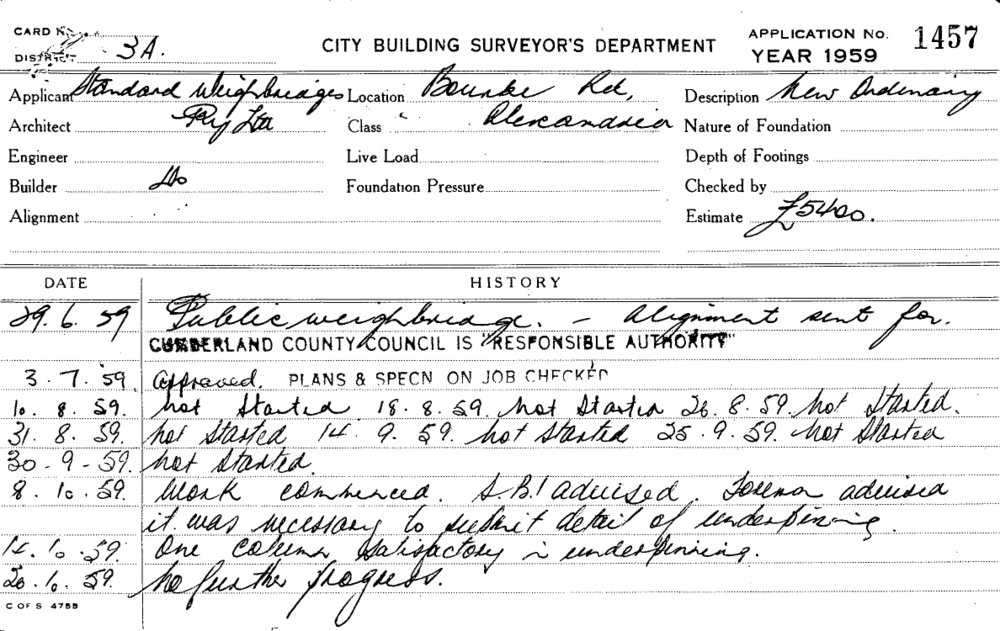 CARD No.
DISTRICT 3A.
CITY BUILDING SURVEYOR'S DEPARTMENT
APPLICATION No. 1457
YEAR 1959
Applicant Standard Weighbridges Location Bourke Rd, Description New Ordinary
Architect Pty Ltd Class Alexandria Nature of Foundation
Engineer Live Load Depth of Footings
Builder Do Foundation Pressure Checked by
Alignment Estimate £5400.
DATE HISTORY
29.6.59 Public weighbridge. - Alignment sent for.
CUMBERLAND COUNTY COUNCIL IS "RESPONSIBLE AUTHORITY"
3.7.59. Approved. PLANS & SPECN ON JOB CHECKED
10.8.59. Not Started 18.8.59. Not Started 26.8.59. Not Started.
31.8.59. Not Started 14.9.59. Not Started 25.9.59. Not Started
30-9-59. Not Started.
8.10.59. Work commenced. S.B.I advised. Foreman advised
it was necessary to submit detail of underpinning.
14.10.59. One column satisfactory in underpinning.
20.10.59. No further progress.
C OF S 4755